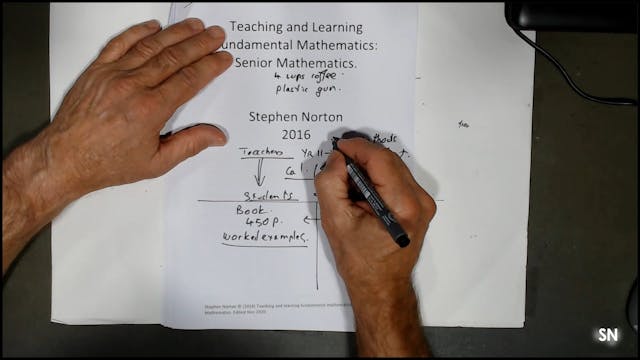 Teaching and Learning
Fundamental Mathematics:
Senior Mathematics.
4 cups coffee.
plastic gun.
Stephen Norton
2016
Teachers YR 11-
Students
Book.
450p.
Worked examples.
Stephen Norton © (2016) Teaching and learning fundamental mathematics
Mathematics. Edited Nov 2020
SN